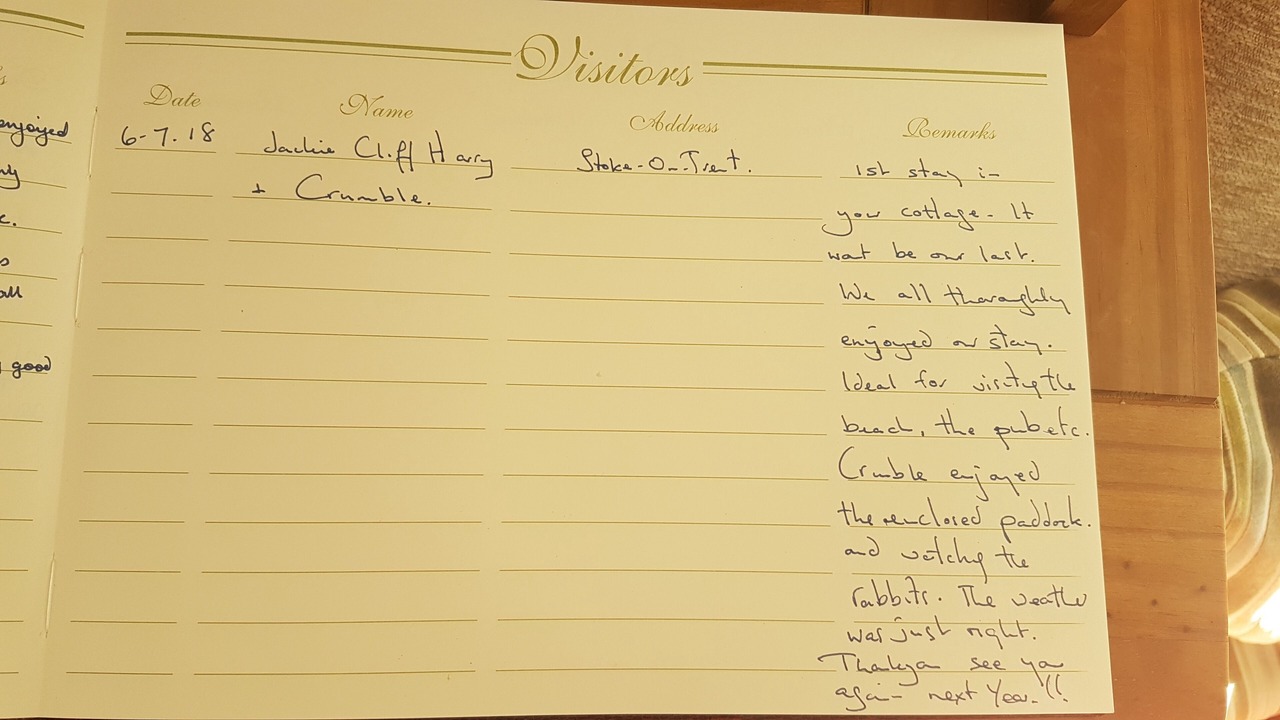 Visitors
Date Name Address Remarks
enjoyed
6-7.18 Jackie Cliff Harry Stoke-On-Trent. 1st stay in
+ Crumble. your cottage - It
c.
wont be our last.
all
We all thoroughly
enjoyed our stay.
good
Ideal for visiting the
beach, the pub etc.
Crumble enjoyed
the enclosed paddock.
and watching the
rabbits. The weather
was just right.
Thankyou see you
again next Year.!!